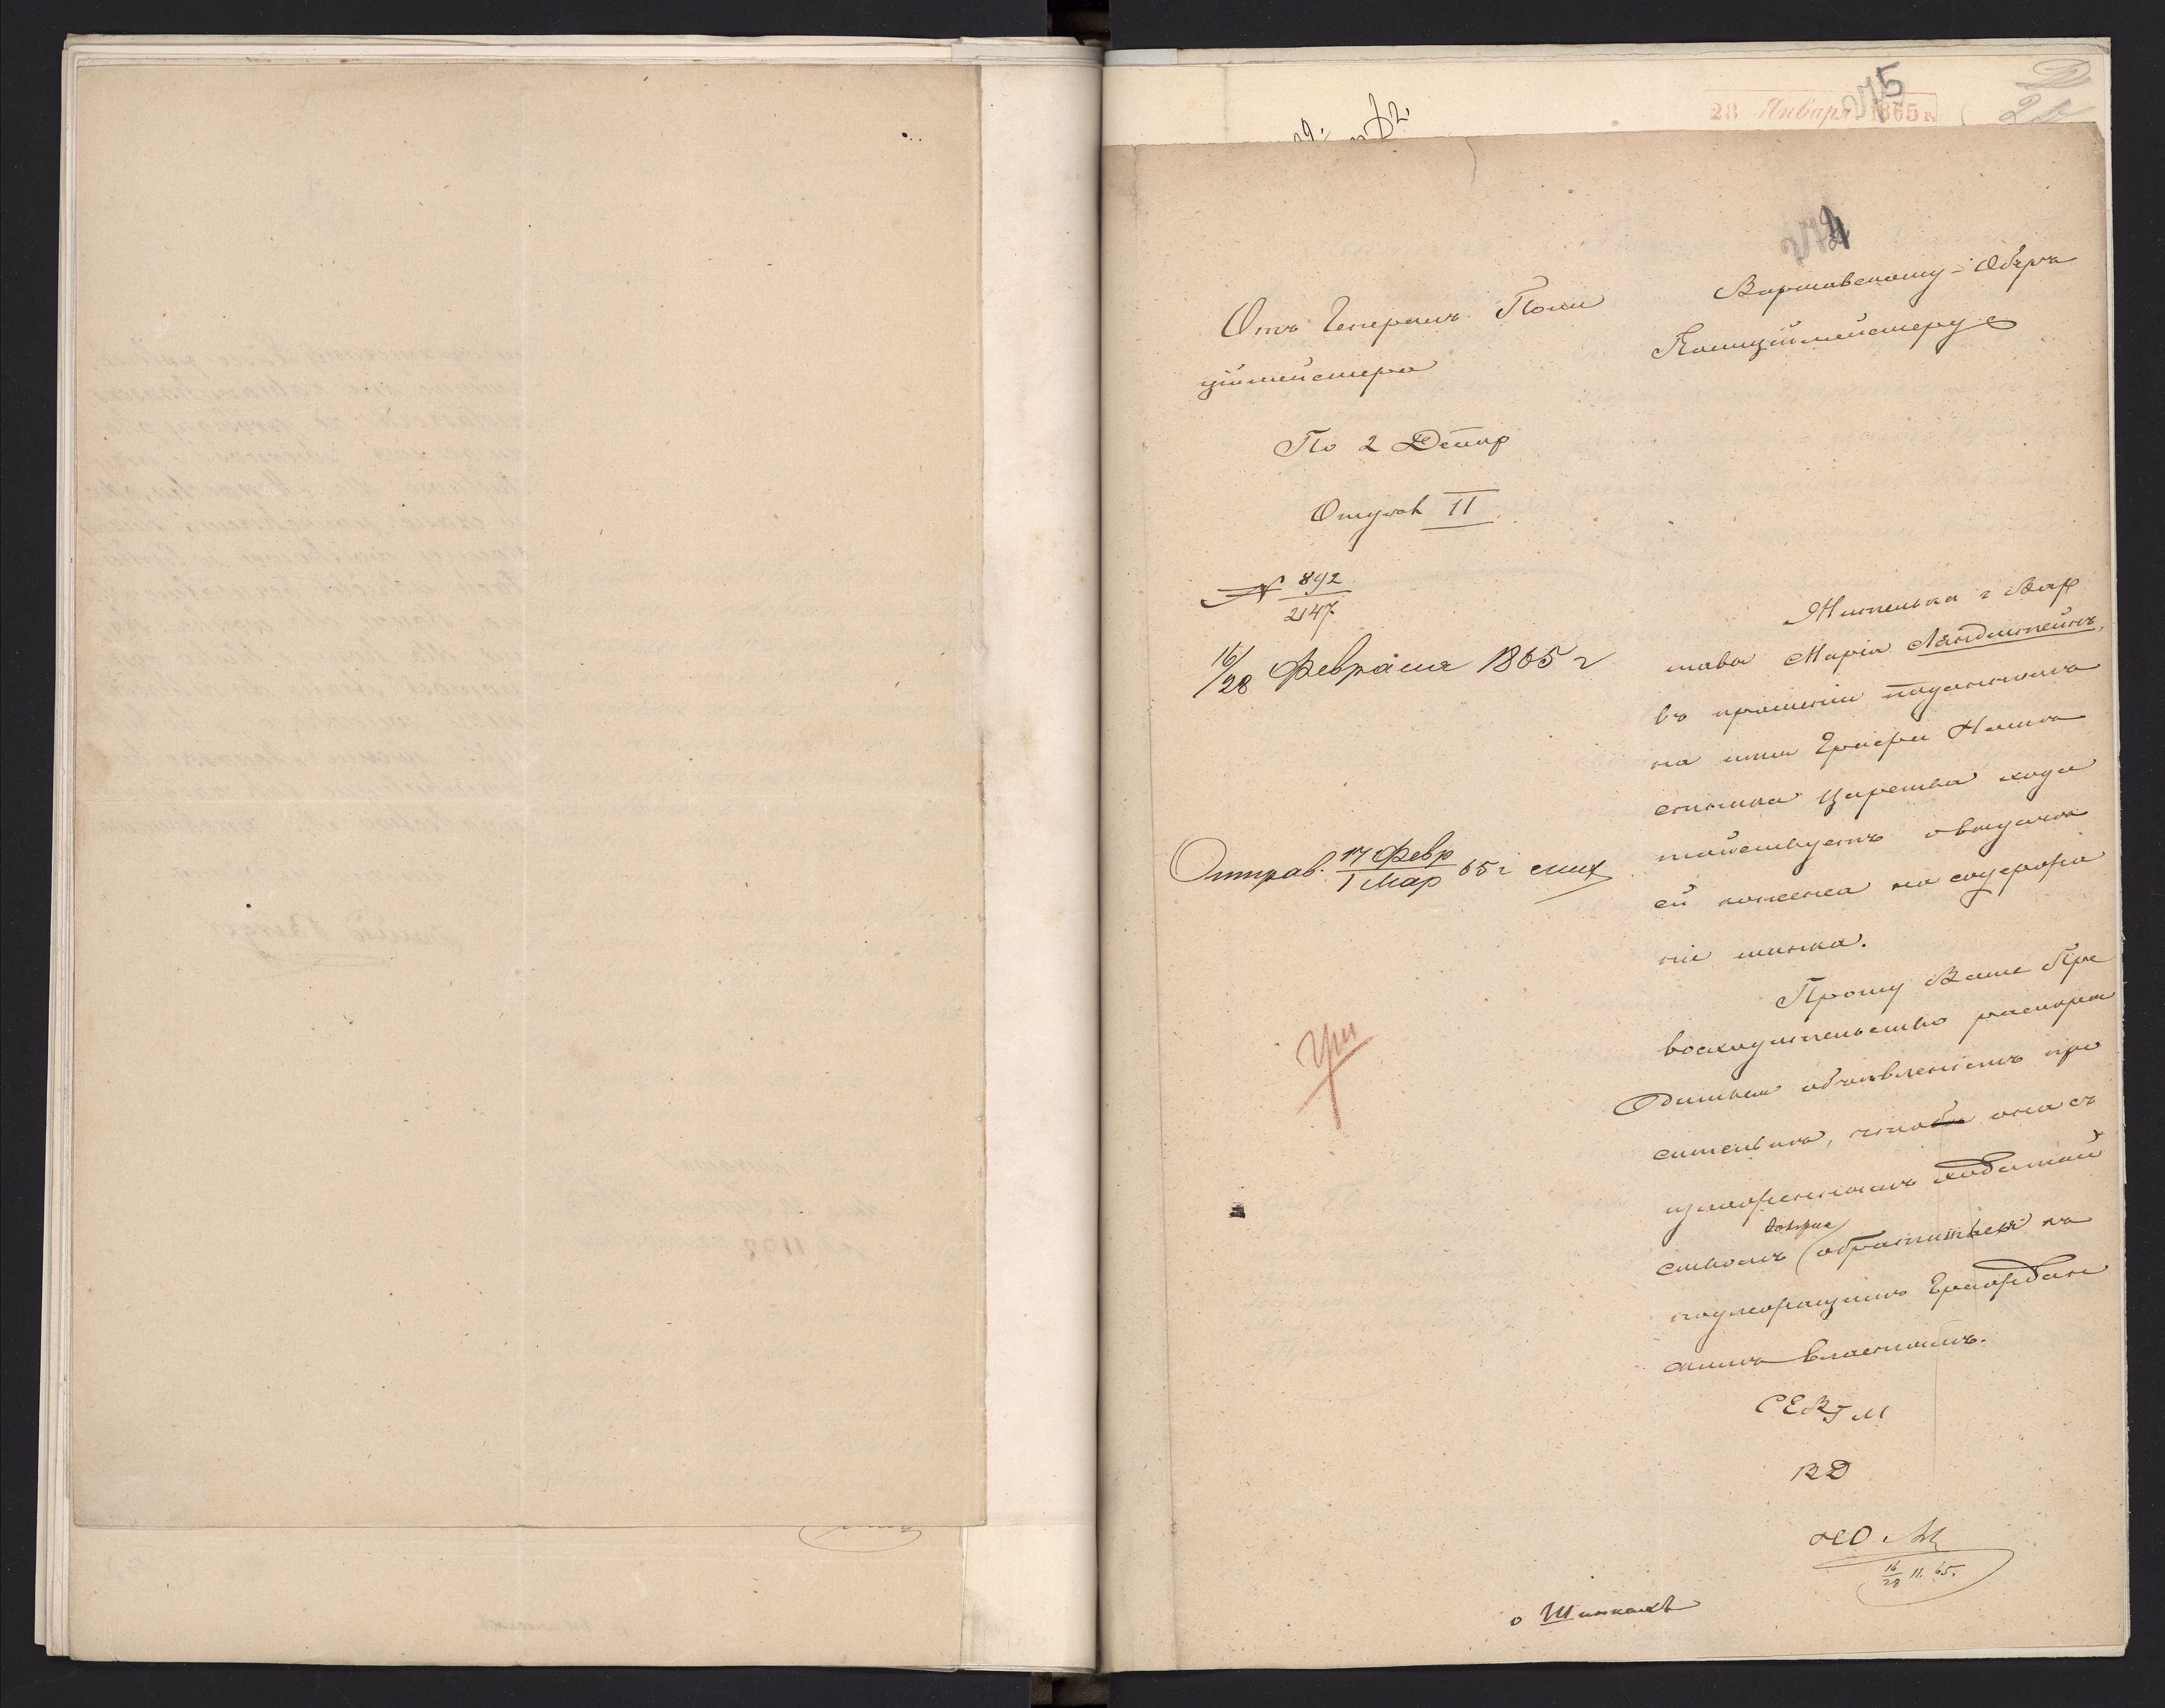 28 Января 1865
275
274
Отъ Генералъ Поли
цiймейстера
По 2 Депар
Отдѣлѣ II
N 892
2147
16/28 Февраля 1865 г
Отправ. 17 Февр
1 Мар 65 г
Варшавскому Оберъ
Полицiймейстеру
Жителька г Вар
шавы Марiя Ляндштейнъ,
въ прошенiи поданномъ
на имя Графа Намѣ
стника Царства хода
тайствуетъ о выдачѣ
ей консенса на содержа
нiе шинка.
Прошу Ваше Пре
восходительство распоря
диться объявленiемъ про
сительницѣ, чтобы она съ
изложеннымъ ходатай
ствомъ обратилась къ
подлежащимъ Граждан
скимъ властямъ.
СЕВГМ
ВД
16/28 II. 65.
о Шинкахъ